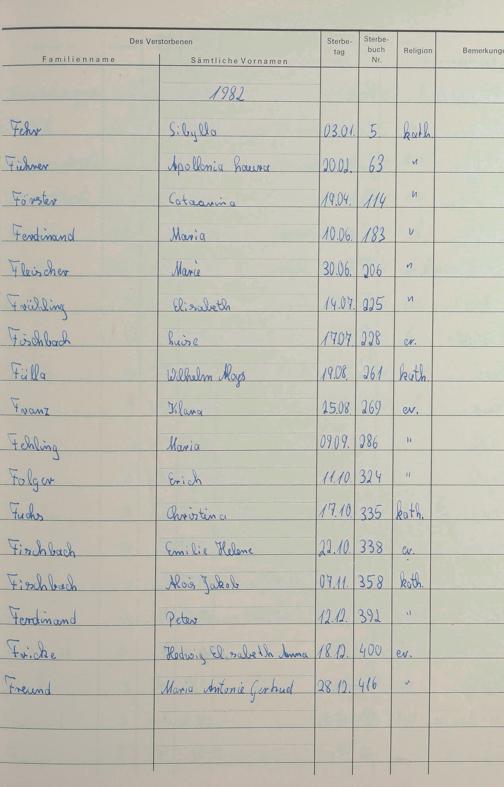 Des Verstorbenen Sterbe- Sterbe- Religion Bemerkung
Familienname Sämtliche Vornamen tag buch Nr.
1982
Fehr Sibylla 03.01. 5. kath.
Führer Apollonia Laura 20.02. 63 "
Förster Catharina 19.04. 114 "
Ferdinand Maria 10.06. 183 "
Fleischer Marie 30.06. 206 "
Frühling Elisabeth 14.07. 225 "
Fischbach Luise 17.07. 228 ev.
Fülla Wilhelm Aloys 19.08. 261 kath.
Franz Klara 25.08. 269 ev.
Fehling Maria 09.09. 286 "
Folger Erich 11.10. 324 "
Fuchs Christina 17.10 335 kath.
Fischbach Emilie Helene 22.10. 338 ev.
Fischbach Alois Jakob 07.11. 358 kath.
Ferdinand Peter 12.12. 392 "
Fricke Hedwig Elisabeth Anna 18.12. 400 ev.
Freund Maria Antonie Gertrud 28.12. 416 "